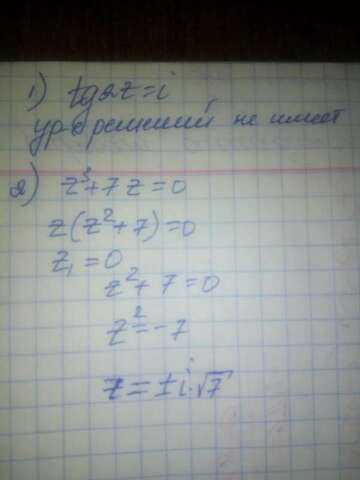 1) tg2z=i
ур-е решений не имеет
2) z³+7z=0
z(z²+7)=0
z₁=0
z²+7=0
z²=-7
z=±i·√7